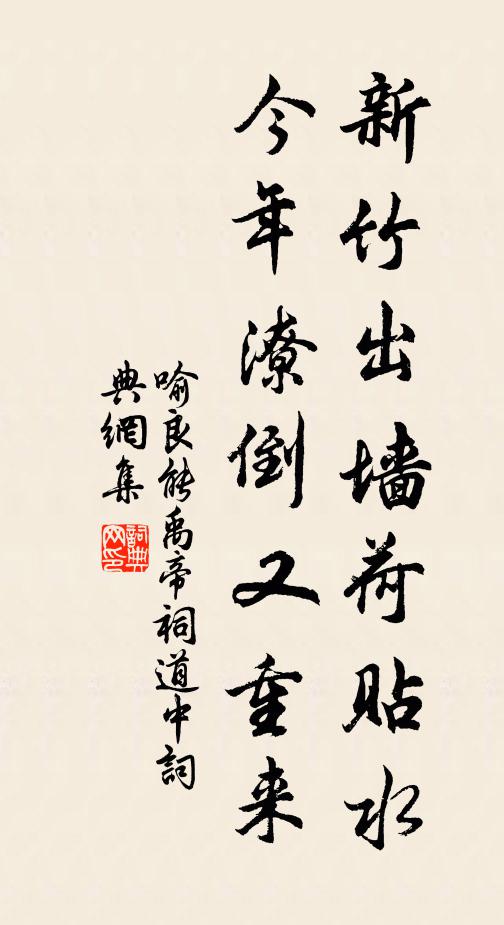 新竹出墙荷貼水
今年潦倒又重来
喻良能禹帝祠道中詞
典網集
詞典网印